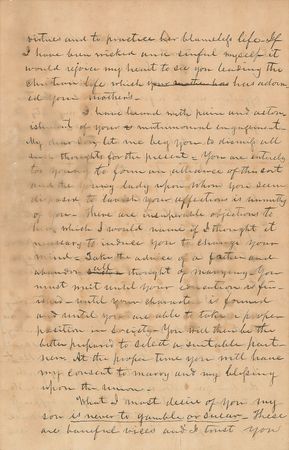 virtues and to practice her blameless life. If
I have been wicked and sinful myself it
would rejoice my heart to see you leading the
Christian life which your mother has adorn
ed your mother's.
I have heard with pain and aston
ishment of your matrimonial engagement.
My dear boy let me beg you to dismiss all
such thoughts for the present. You are entirely
too young to form an alliance of this sort
and the young lady upon whom you seem
disposed to lavish your affections is unworthy
of you. There are insuperable objections to
her which I would name if I thought it
necessary to induce you to change your
mind. Take the advice of a father and
abandon all thought of marrying. You
must wait until your education is fin
ished - until your character is formed
and until you are able to take a proper
position in society. You will then be the
better prepared to select a suitable part
ner. At the proper time you will have
my consent to marry and my blessing
upon the union.
What I most desire of you my
son is never to gamble or swear. These
are baneful vices and I trust you